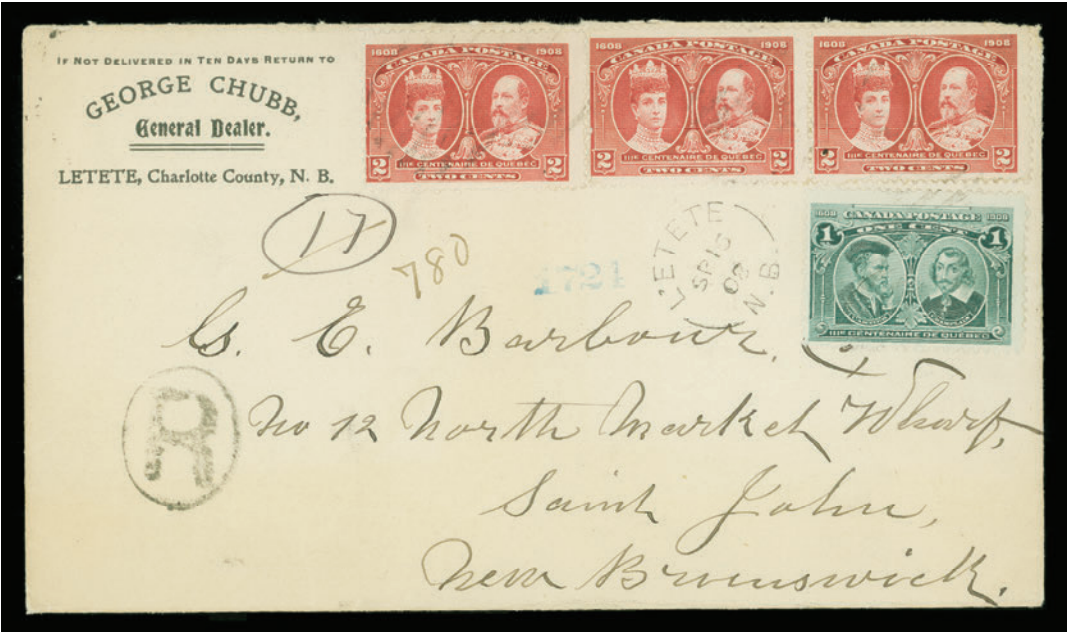 IF NOT DELIVERED IN TEN DAYS RETURN TO
GEORGE CHUBB,
General Dealer.
LETETE, Charlotte County, N. B.
1608 CANADA POSTAGE 1908
2 IIIe CENTENAIRE DE QUÉBEC 2
TWO CENTS
1608 CANADA POSTAGE 1908
2 IIIe CENTENAIRE DE QUÉBEC 2
TWO CENTS
1608 CANADA POSTAGE 1908
2 IIIe CENTENAIRE DE QUÉBEC 2
TWO CENTS
1608 CANADA POSTAGE 1908
1 ONE CENT 1
IIIe CENTENAIRE DE QUÉBEC
17
780
1721
L'ETETE
SP 15
N.B.
G. E. Barbour,
R
No 12 North Market Wharf,
Saint John,
New Brunswick.